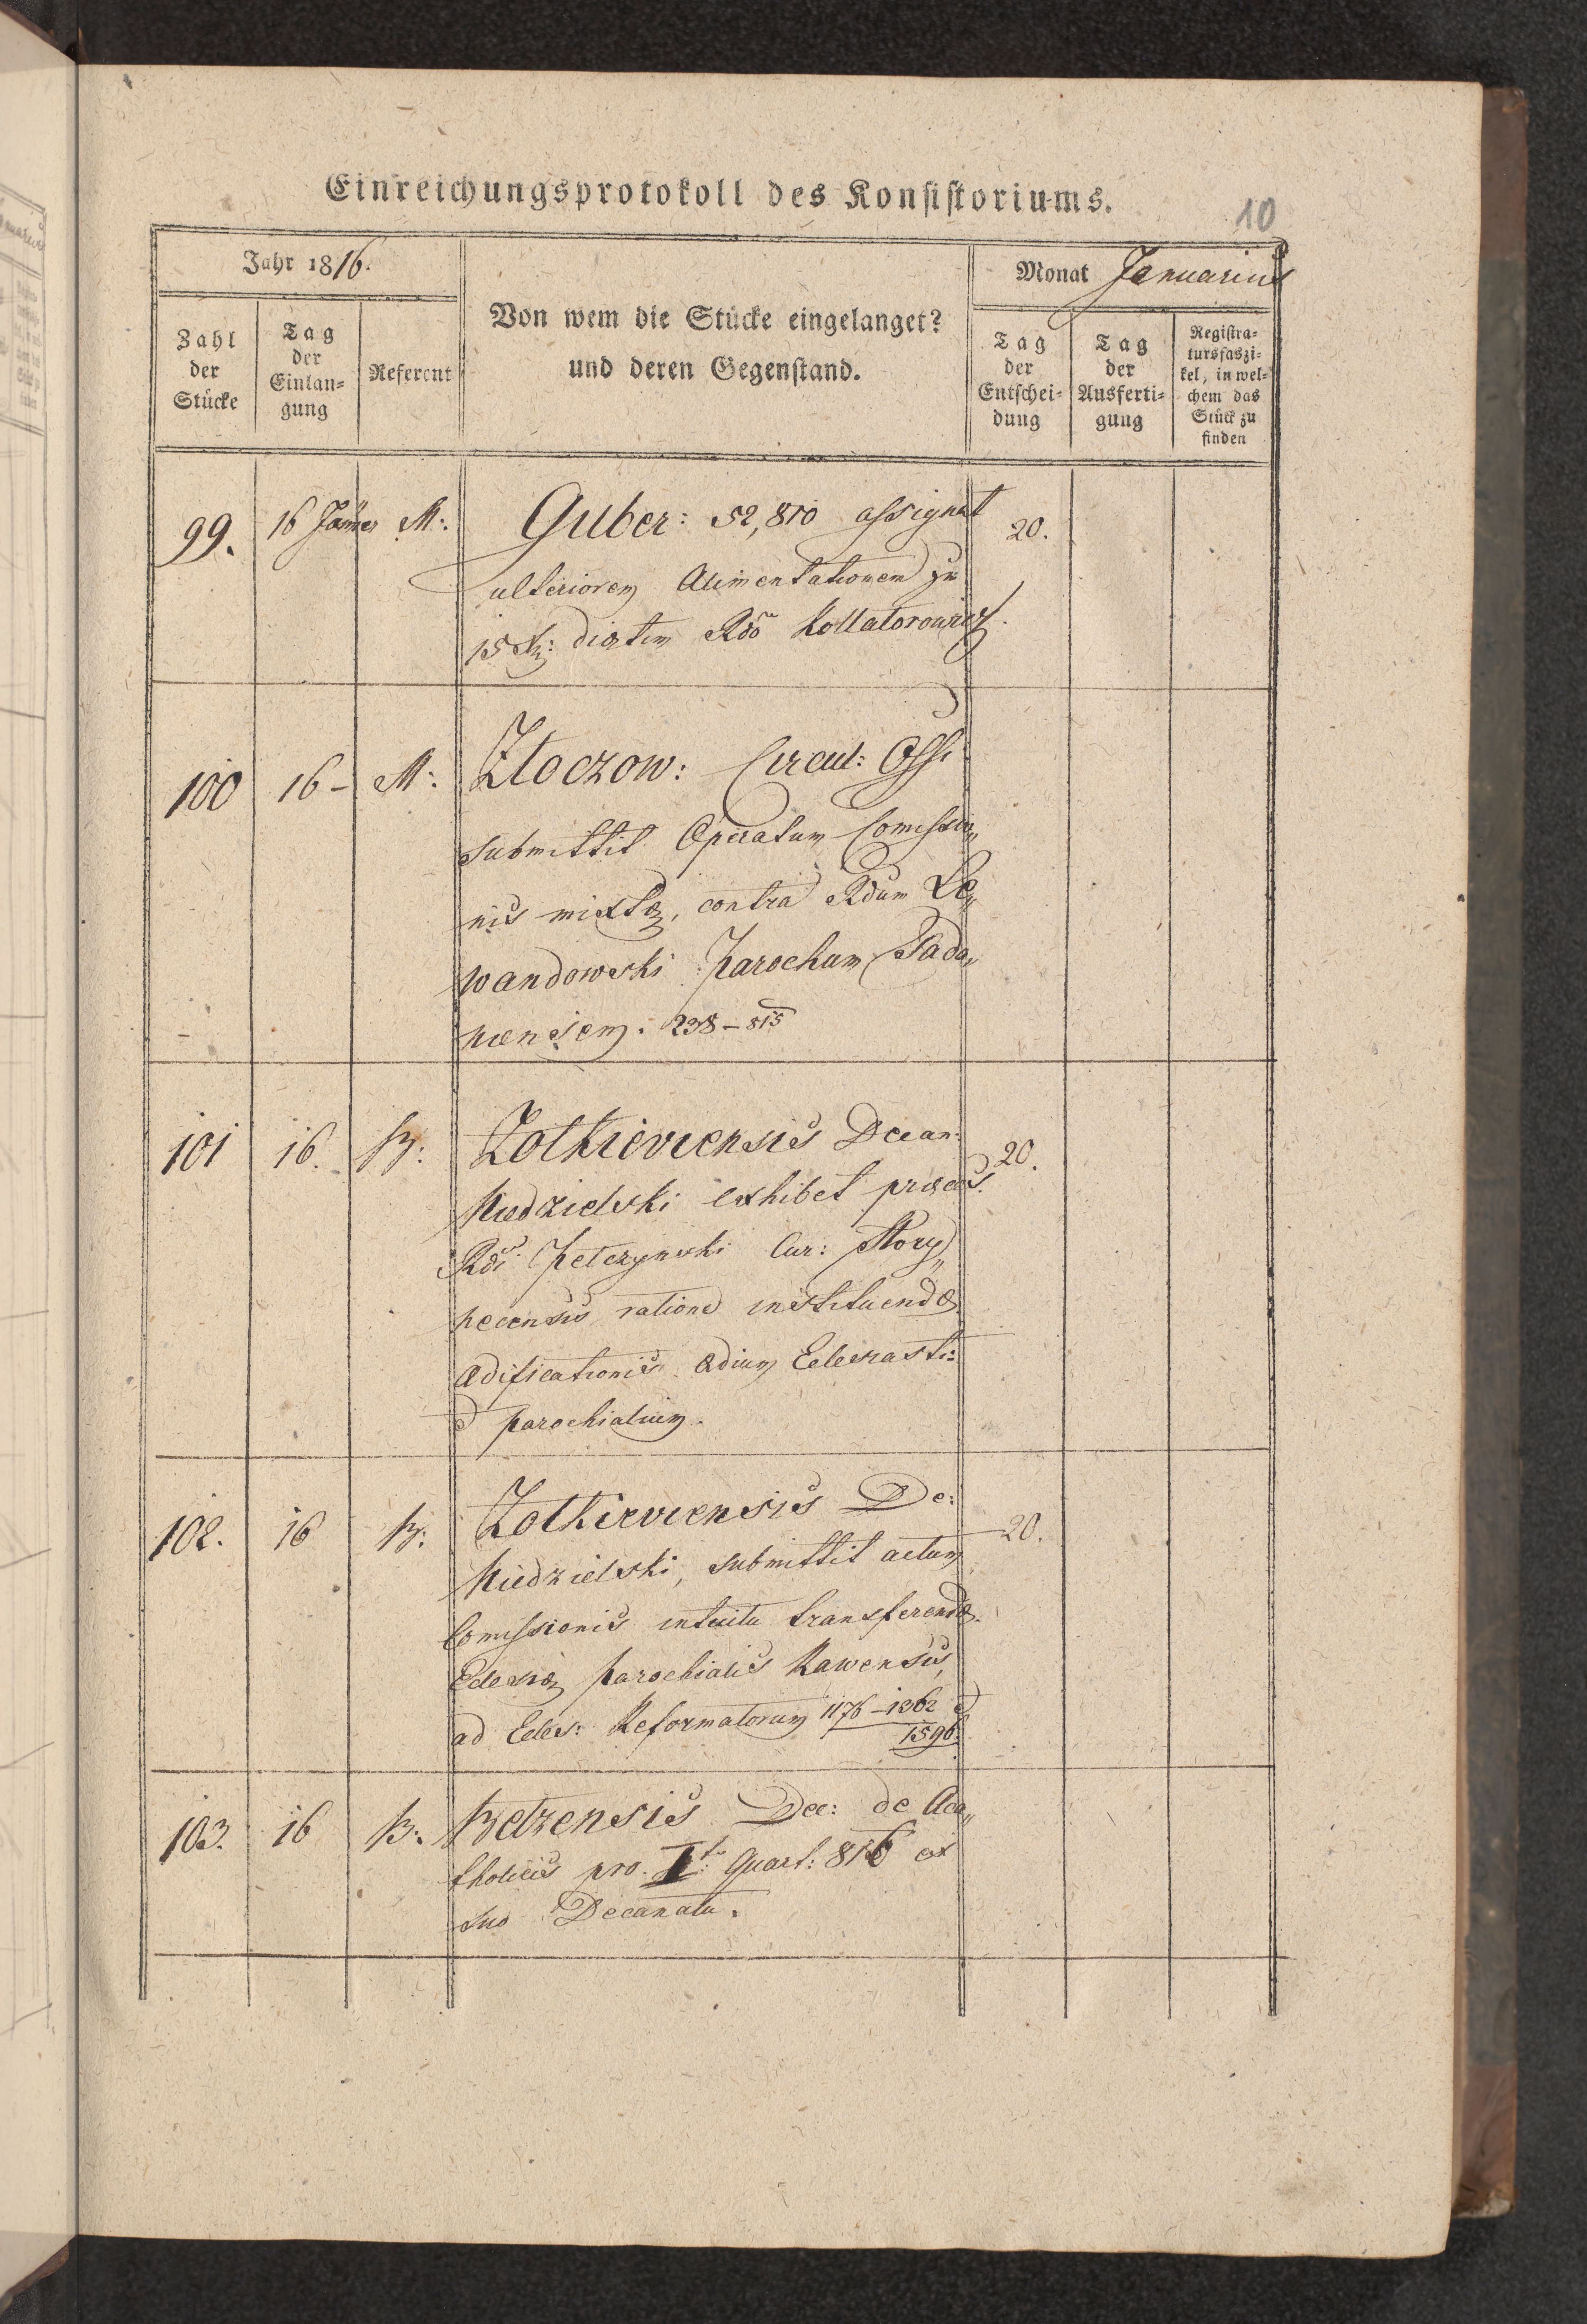 Einreichungsprotokoll des Konsistoriums.
10
Jahr 1816.
Monat Januarius
Zahl der Stücke
Tag der Einlan=gung
Referent
Von wem die Stücke eingelanget?
und deren Gegenstand.
Tag der Entschei=dung
Tag der Ausferti=gung
Registra=tursfaszi=kel, in wel=chem das Stück zu finden
99. 16 Jäner M: Guber: 52,810 assignat 20.
ulteriorem Alimentationem zu
15 Xr: diatim Rdo Kollatorowicz.
100 16 – M: Złoczow: Circul: Offi
submittit Operatum Comissio„
nis mixtæ, contra Rdum Le„
wandowski Parochum Sada„
wensem. 238 – 815
101 16. B: Zolkieviensis Decan: 20.
Niedzielski exhibet præces
Rdi Petczynski Cur: Story„
necensis ratione instituendæ
ædificationis ædium Eclesiasti:
parochialium.
102. 16 B: Zolkieviensis De: 20.
Niedzielski, submittit actum
Comissionis intuitu transferendæ
Eclesiæ parochialis Rawensis,
ad Ecles: Reformatorum 1176 – 1362
1596.
103. 16 B: Belzensis Dec: de Aca„
tholicis pro I: Quart: 816 ex
suo Decanatu.